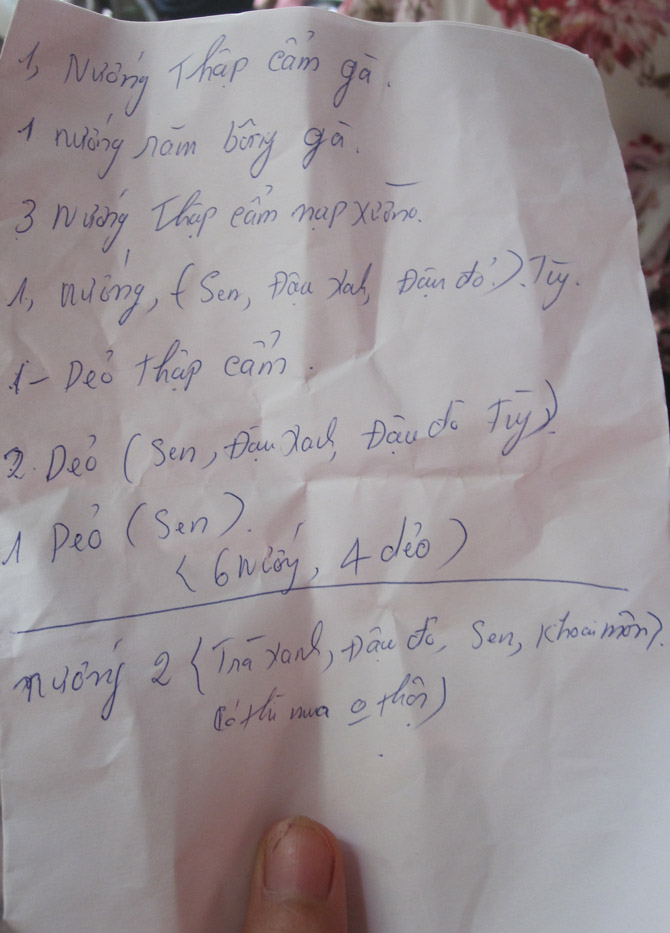 1, Nướng Thập cẩm gà.
1 nướng răm bông gà.
3 Nướng Thập cẩm nạp xường.
1, nướng, (Sen, Đậu xah, Đậu đỏ). Tùy.
1- Dẻo thập cẩm.
2. Dẻo (Sen, Đậu Xah, Đậu đỏ Tùy).
1 Dẻo (Sen).
(6 nướg, 4 dẻo)
nướng 2 (Trà xanh, Đậu đỏ, Sen, Khoai môn).
Có thì mua o thôi)